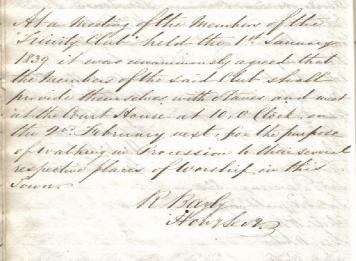 At a Meeting of the Members of the
Tricity Club held the 1st January
1839 it was unanimously agreed that
the Members of the said Club shall
provide themselves with Staves and meet
at the Court House at 10. O Clock on
the 2nd February next, for the purpose
of walking in Procession to their several
respective places of Worship in this
Town.
R Bayly
Hony Secy